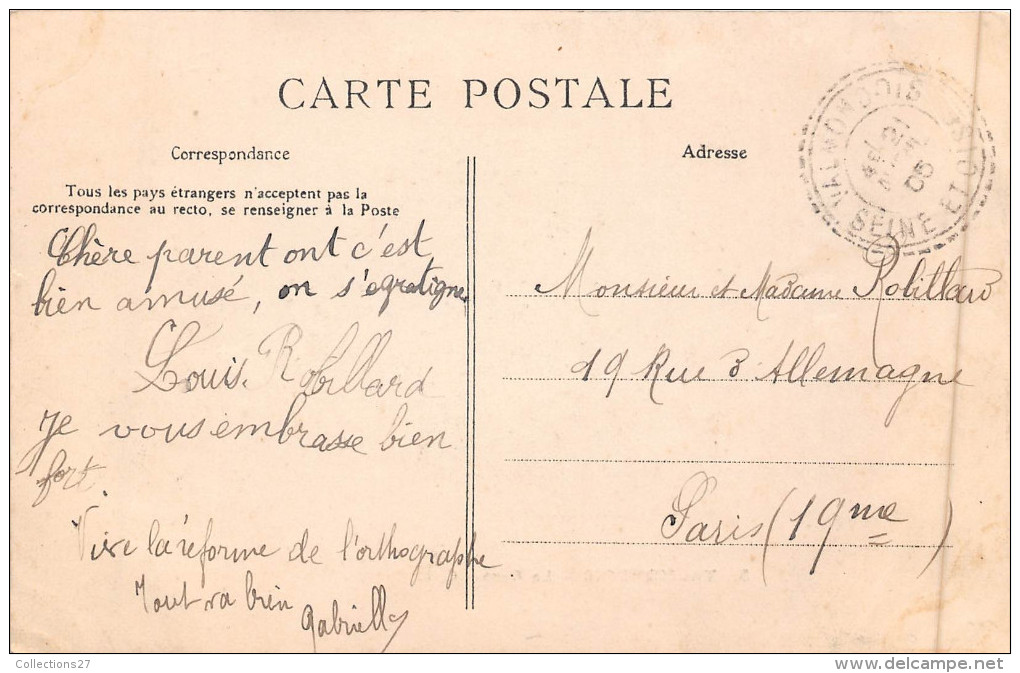 CARTE POSTALE
Correspondance
Tous les pays étrangers n'acceptent pas la
correspondance au recto, se renseigner à la Poste
Chère parent ont c'est
bien amusé, on s'egratigne
Louis. Robillard
Je vous embrasse bien
fort.
Vive la réforme de l'orthographe
Tout va bien
Gabrielle
Adresse
VALMONDOIS
SEINE ET OISE
05
Monsieur et Madame Robillard
19 Rue d'Allemagne
Paris (19me)
Collections27
delcampe.net